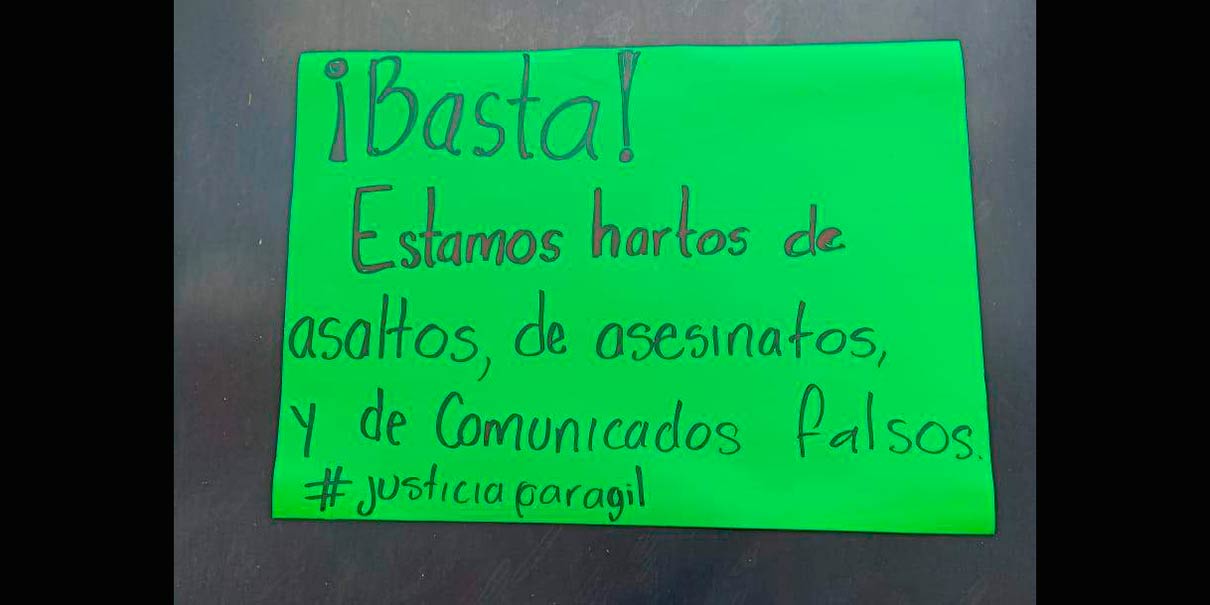 ¡Basta!
Estamos hartos de
asaltos, de asesinatos,
y de Comunicados falsos.
#justiciaparagil